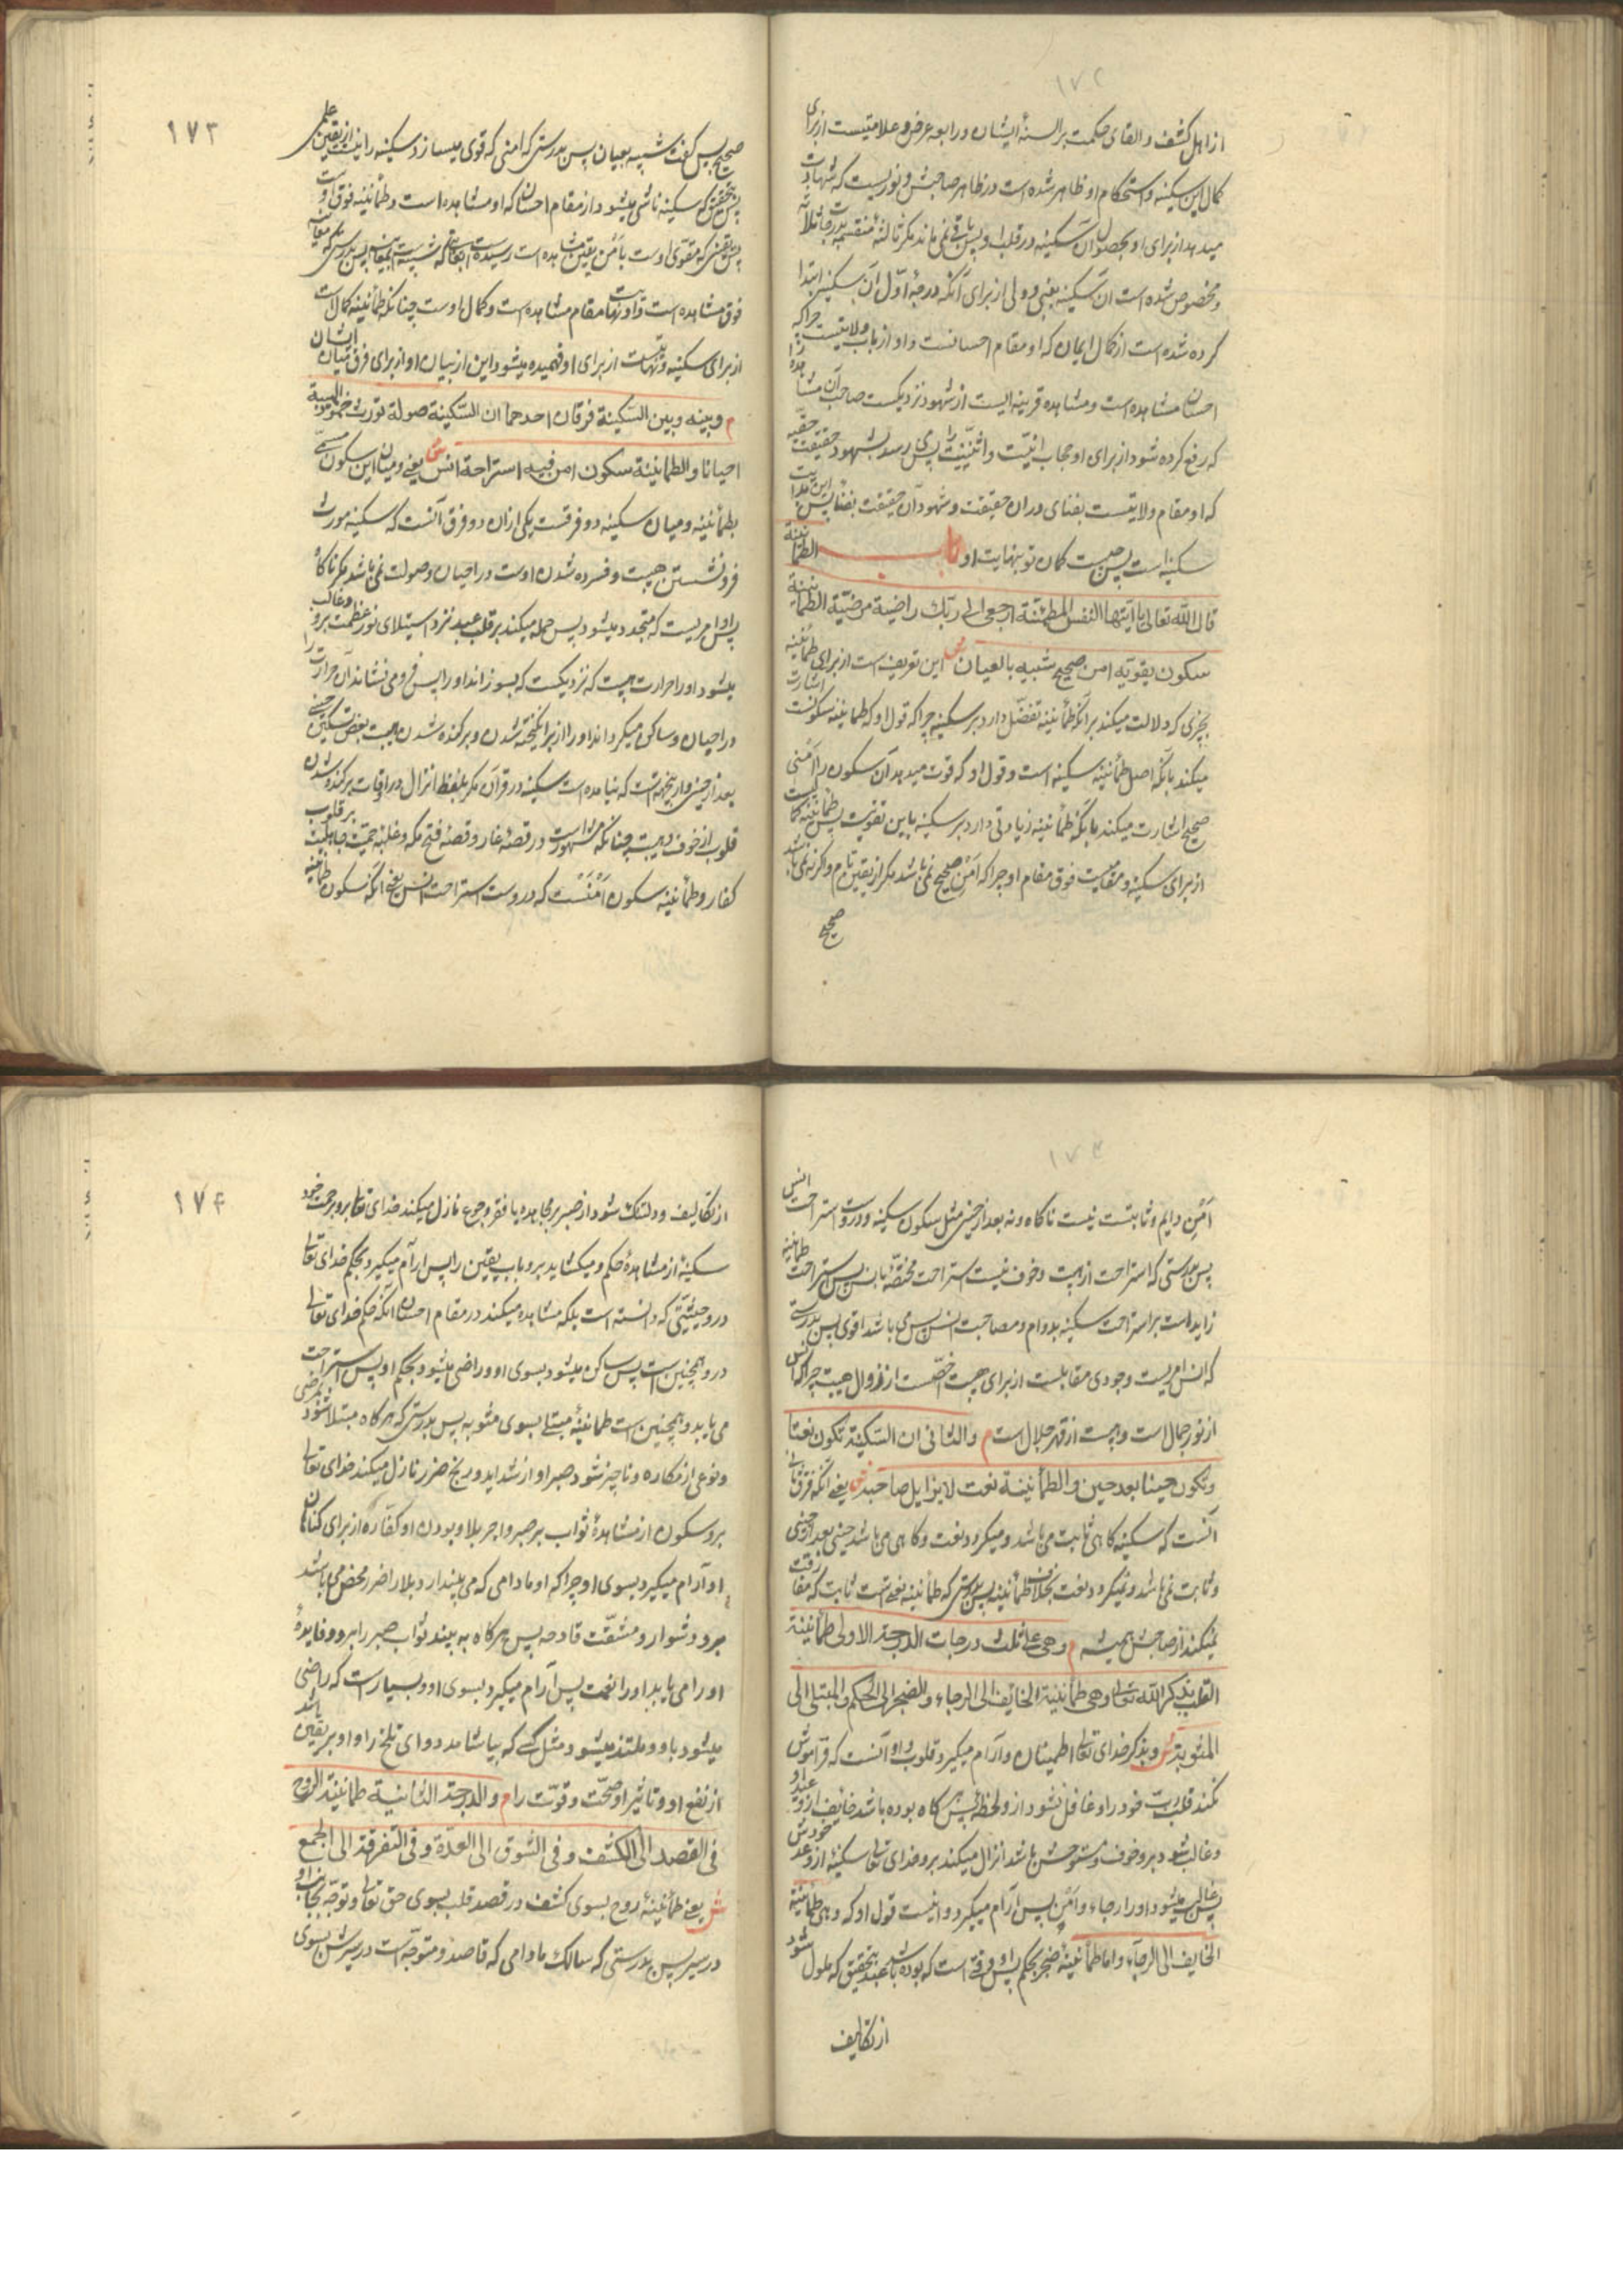 ١٧٢
از اهل کشف و القای حکمت بر السنهٔ ایشان و رابوه عرض و علامتیست از برای
کمال این سکینه و استحکام او ظاهر شده است در ظاهر صاحبش و نوریست که شهادت
میدهد از برای او بحصول آن سکینه در قلب او پس باقی نمی ماند مگر ثالثه منقسمه بدرجات ثلاثه
و مخصوص شده است آن سکینه بنبی و ولی از برای آنکه درجهٔ اول آن سکینه ابتدا
کرده شده است از کمال ایمان که او مقام احسانست و او از باب ولایتست چراکه
احسان مشاهده است و مشاهده قرینه ایست از شهود نزدیکست صاحب آن مشاهده را
که رفع کرده شود از برای او حجاب انیّت و اثنینیّت را پس می رسد بشهود حقیقت حقیّه
که او مقام ولایتست بفنای در آن حقیقت و شهود آن حقیقت بفنا پس این بدایت
سکینه است پس چیست گمان تو بنهایت او باب الطمأنینة
قال الله تعالی یا ایتها النفس المطمئنة ارجعی الی ربک راضیة مرضیّة الطمأنینة
سکون یقویه امن صحیح شبیه بالعیان ش این تعریف است از برای طمأنینه
بچیزی که دلالت میکند بر آنکه طمأنینه تفضّل دارد بر سکینه چراکه قول او که طمأنینه سکونست اشارت
میکند بآنکه اصل طمأنینه سکینه است و قول او که قوت میدهد آن سکون را امنی
صحیح اشارت میکند بآنکه طمأنینه زیادتی دارد بر سکینه باین تقویت پس طمأنینه کمالیست
از برای سکینه و مقامیست فوق مقام او چراکه امن صحیح نمی باشد مگر از یقین تام وگرنه نمی باشد
صحیح
١٧٣
صحیح پس گفت شبیه بعیان پس بدرستی که امنی که قوی میسازد سکینه را نیست از یقین علمی
پس بتحقیق که سکینه ناشی میشود از مقام احسان که او مشاهده است و طمأنینه فوق اوست
فوق مشاهده است و او نهایت مقام مشاهده است و کمال اوست چنانکه طمأنینه کمال است
از برای سکینه و نهایتست از برای او فهمیده میشود این از بیان او از برای فرق میان ایشان
م و بینه و بین السّکینة فرقان احدهما ان السّکینة صولة تورث خمود الهیبة
احیانا و الطمانینة سکون امن فیه استراحة انس ش یعنی و میان این سکون مسمّی
بطمأنینه و میان سکینه دو فرقست یکی از آن دو فرق آنست که سکینه مورث
فرونشستن هیبت و فسرده شدن اوست در احیان و صولت نمی باشد مگر ناگاه
پس او امریست که متجدد میشود پس حمله میکند بر قلب عبد نزد استیلای نور عظمت برو و غالب
میشود او را حرارت هیبت که نزدیکست که بسوزاند او را پس فرو می نشاند آن حرارت را
در احیان و ساکن میکرداند او را از برانگیخته شدن و برکنده شدن هیبت بعض تسکین حینی
بعد از حینی و از ینجهتست که نیامده است سکینه در قرآن مگر بلفظ انزال در اوقات برکنده شدن
قلوب از خوف و هیبت چنانکه مشهورست در قصهٔ غار و قصهٔ فتح مکه و غلبهٔ حمیّت جاهلیّت بر قلوب
کفار و طمأنینه سکون امنست که دروست استراحت انس یعنی آنکه سکون طمأنینه
١٧٣
امن دایم و ثابتست نیست ناگاه و نه بعد از حینی مثل سکون سکینه و دروست استراحت انس
پس بدرستی که استراحت از هیبت و خوف نیست استراحت مختصّه بانس پس استراحت طمأنینه
زاید است بر استراحت سکینه بدوام و مصاحبت انس پس می باشد اقوی پس بدرستی
که انس امریست وجودی مقابلست از برای هیبت اخصّست از زوال هیبت چراکه انس
از نور جمال است و هیبت از قهر جلال است م و الثانی ان السّکینة تکون نعتا
و تکون حینا بعد حین و الطمأنینة نعت لا یزایل صاحبه ش یعنی آنکه فرق ثانی
آنست که سکینه گاهی ثابت می باشد و میگردد نعت و گاهی می باشد حینی بعد از حینی
و ثابت نمی باشد و نمیگردد نعت بخلاف طمأنینه پس بدرستی که طمأنینه نعتیست ثابت که مفارقت
نمیکند از صاحبش همیشه م و هی علی ثلث درجات الدرجة الاولی طمأنینة
القلب بذکر الله تعالی و هی طمأنینة الخایف الی الرجاء و الضجر الی الحکم و المبتلی الی
المثوبة ش و بذکر خدای تعالی اطمینان و آرام میگیرد قلوب و او آنست که فراموش
نکند قلب رب خود را و غافل نشود ازو لحظهٔ پس هرگاه بوده باشد خایف ازو عبد او
و غالب شود برو خوف و مستوحش باشد انزال میکند برو خدای تعالی سکینهٔ از وعد خودش
پس غالب میشود او را رجاء و امن پس آرام میگیرد و اینست قول او که و هی طمأنینة
الخایف الی الرجاء و اما طمأنینهٔ ضجر بحکم پس او وقتی است که بوده باشد عبد بتحقیق که ملول شود
از تکالیف
١٧۴
از تکالیف و دلتنگ شود از صبر بر مجاهده یا فقر و جوع نازل میکند خدای تعالی برو برحمت خود
سکینهٔ از مشاهدهٔ حکم و میکشاید برو باب یقین را پس آرام میگیرد بحکم خدای تعالی
درو حیثیتی که دانسته است بلکه مشاهده میکند در مقام احسان آنکه حکم خدای تعالی
درو همچنین است پس ساکن میشود بسوی او و راضی میشود بحکم او پس استراحت
می یابد و همچنین است طمأنینهٔ مبتلی بسوی مثوبه پس بدرستی که هرگاه مبتلا شود بمرضی
و نوعی از مکاره و ناچیز شود صبر او از شداید و رنج ضرر نازل میکند خدای تعالی
برو سکون از مشاهدهٔ ثواب بر صبر و اجر بلا و بودن او کفاره از برای گناهان
او آرام میگیرد بسوی او چراکه او مادامی که می پندارد بلا را ضرر محض می باشد
برو دشوار و مشقّت قادحه پس هرگاه به بیند ثواب صبر را برو و فایدهٔ
او را می یابد او را نعمت پس آرام میگیرد بسوی او و بسیارست که راضی
میشود باو و ملتذ میشود مثل کسی که بیاشامد دوای تلخ را و او بر یقین باشد
از نفع او و تاثیر او صحّت و قوّت را م و الدرجة الثانیة طمانینة الروح
فی القصد الی الکشف و فی الشوق الی العدّة و فی التفرقة الی الجمع
ش یعنی طمأنینهٔ روح بسوی کشف در قصد قلب بسوی حق تعالی و توجّه بجناب او
در سیر پس بدرستی که سالک مادامی که قاصد و متوجّه است در سیرش بسوی